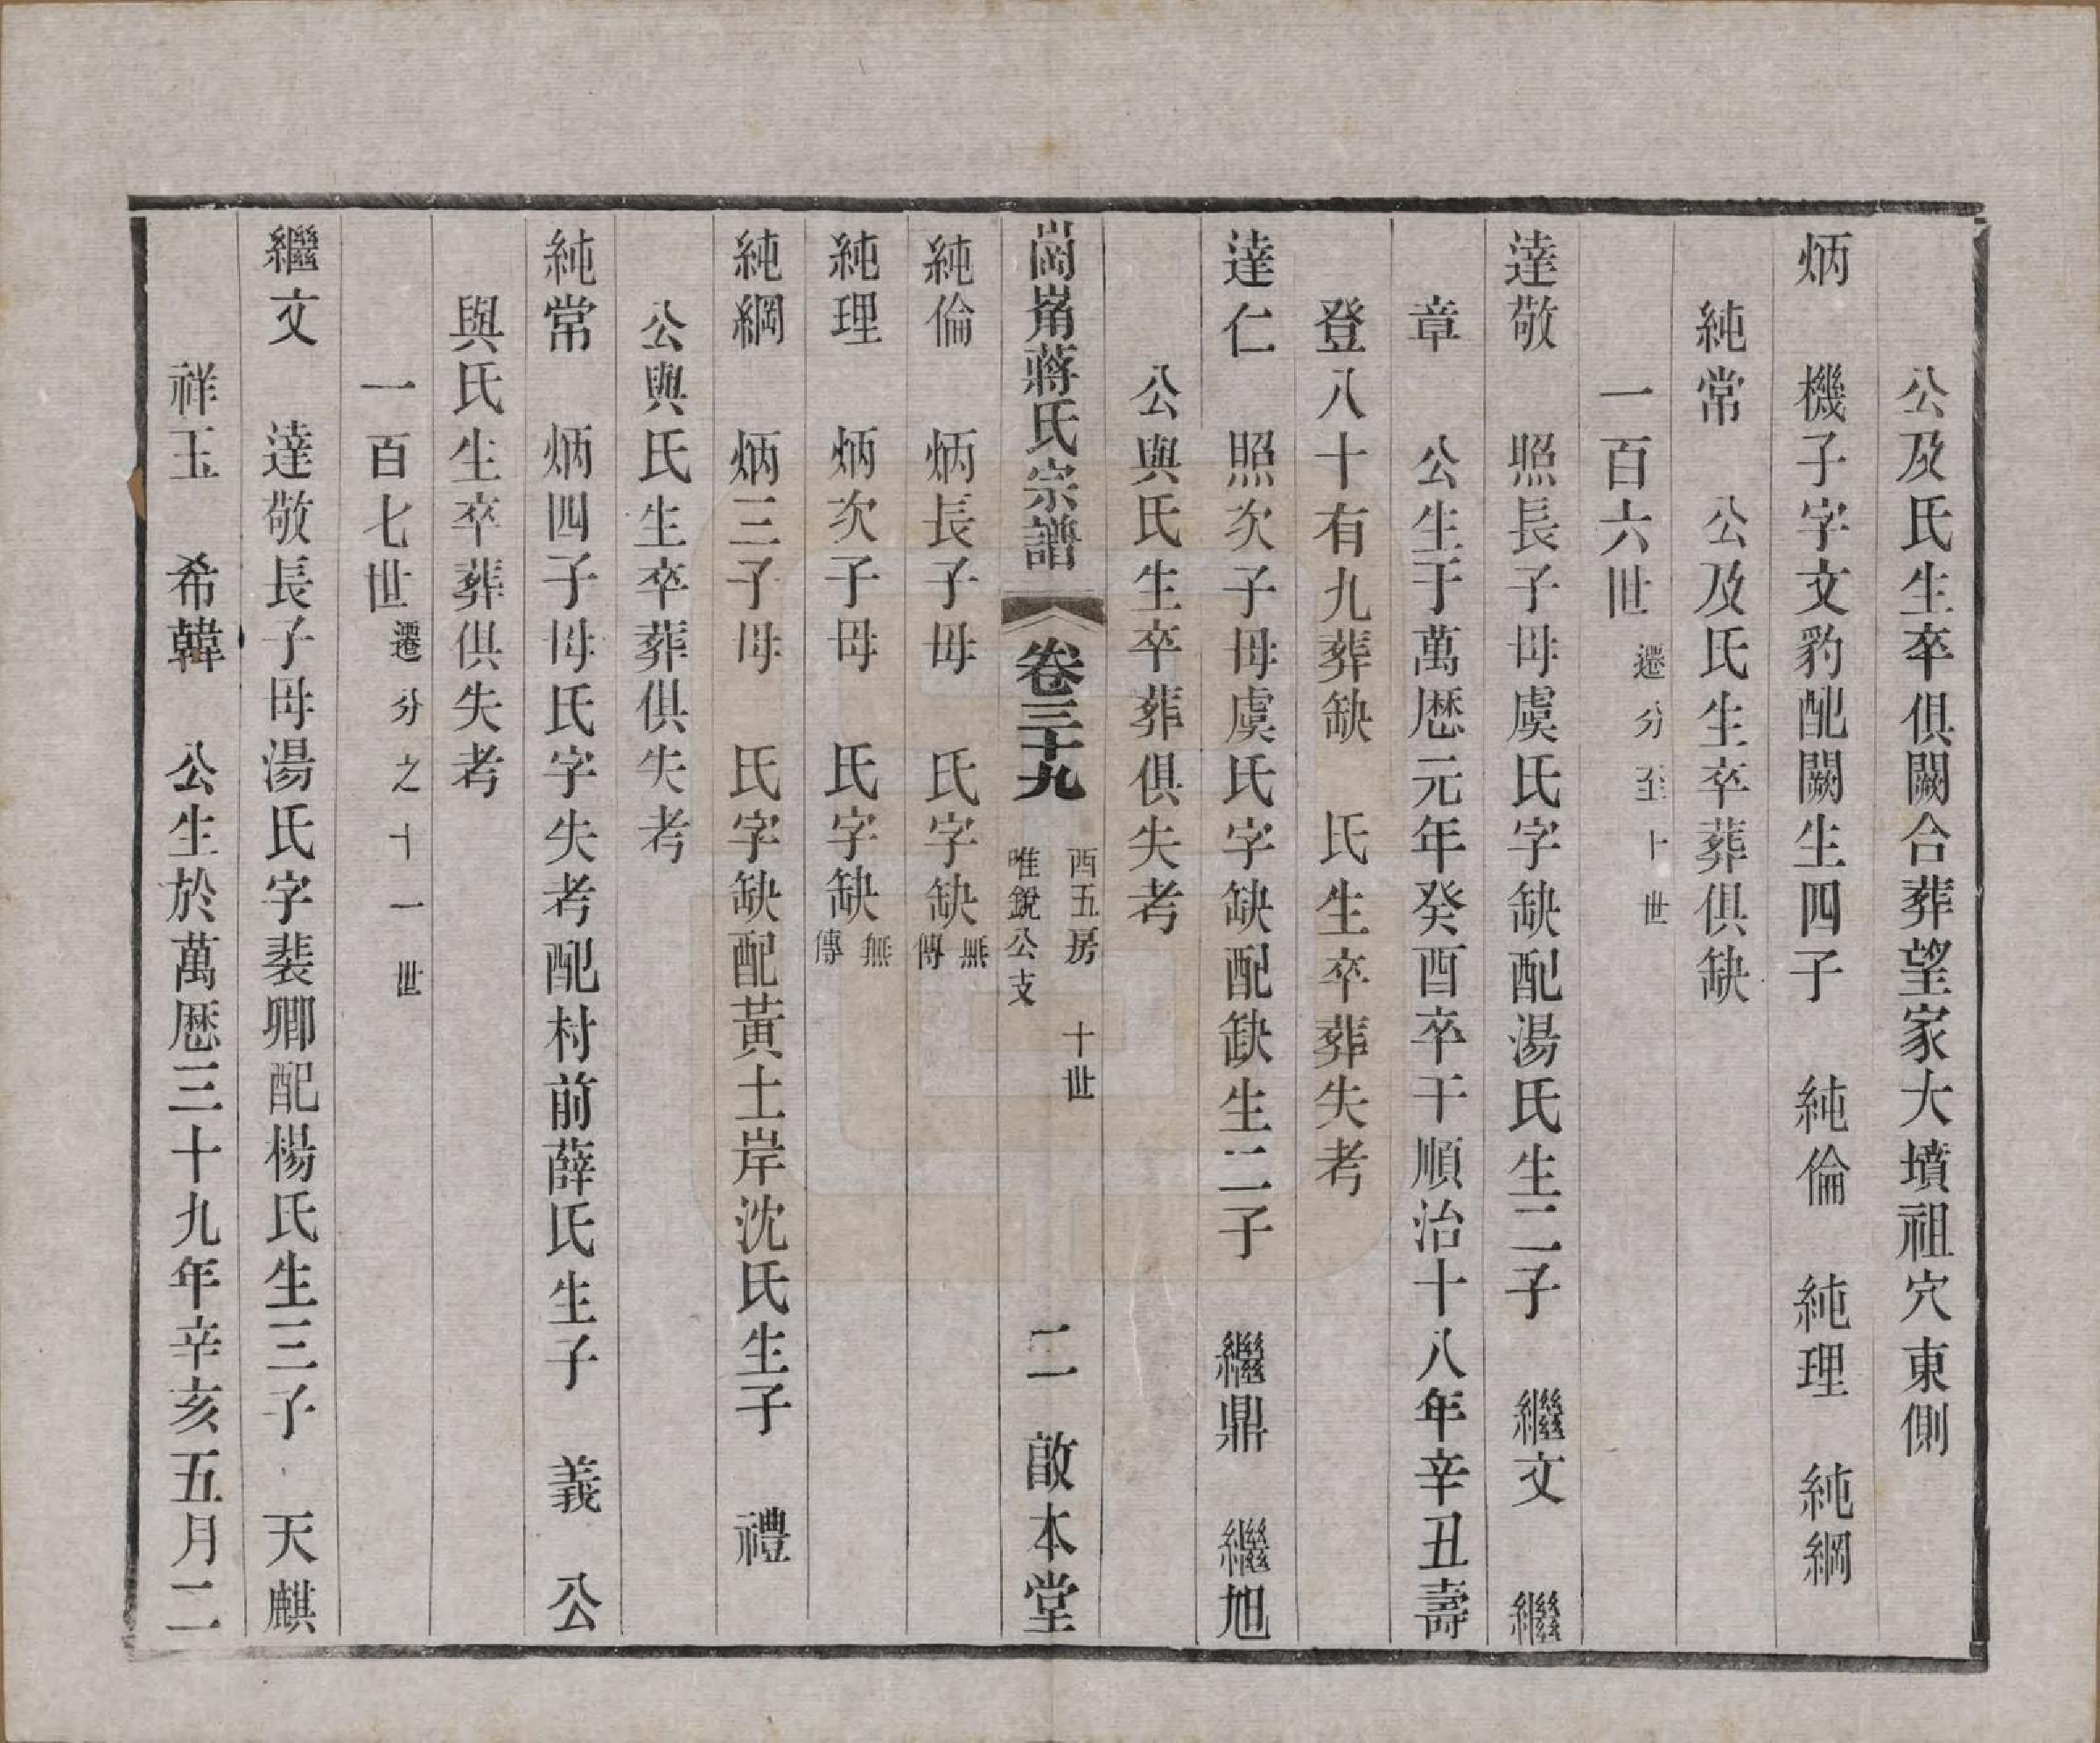 公及氏生卒俱闕合葬望家大墳祖穴東側
炳　機子字文豹配闕生四子　純倫　純理　純綱
純常　公及氏生卒葬俱缺
一百六世遷分至十世
達敬　照長子母虞氏字缺配湯氏生二子　繼文　繼
章　公生于萬歴元年癸酉卒于順治十八年辛丑壽
登八十有九葬缺　氏生卒葬失考
達仁　照次子母虞氏字缺配缺生二子　繼鼎　繼旭
公與氏生卒葬俱失考
崗嶲蔣氏宗譜　卷三十九　西五房　十世　唯銳公支　二　敢本堂
純倫　炳長子母　氏字缺無傳
純理　炳次子母　氏字缺無傳
純綱　炳三子母　氏字缺配黃土岸沈氏生子　禮
公與氏生卒葬俱失考
純常　炳四子母氏字失考配村前薛氏生子　義　公
與氏生卒葬俱失考
一百七世遷分之十一世
繼文　達敬長子母湯氏字裴卿配楊氏生三子　天麒
祥玉　希韓　公生於萬歴三十九年辛亥五月二